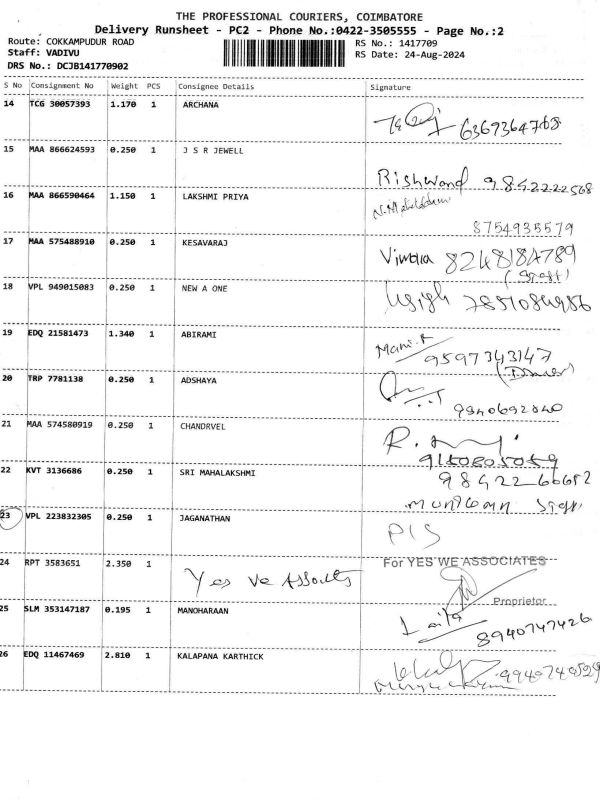 THE PROFESSIONAL COURIERS, COIMBATORE
Delivery Runsheet - PC2 - Phone No.:0422-3505555 - Page No.:2
Route: COKKAMPUDUR ROAD
RS No.: 1417709
Staff: VADIVU
RS Date: 24-Aug-2024
DRS No.: DCJB141770902
S No Consignment No Weight PCS Consignee Details Signature
14 TCG 30057393 1.170 1 ARCHANA
6369364768
15 MAA 866624593 0.250 1 J S R JEWELL
Rishwand 9842222568
16 MAA 866590464 1.150 1 LAKSHMI PRIYA
8754935579
17 MAA 575488910 0.250 1 KESAVARAJ
Vimala 8248184789
(Staff)
18 VPL 949015083 0.250 1 NEW A ONE
7851084986
19 EDQ 21581473 1.340 1 ABIRAMI
Mani.K
9597343147
20 TRP 7781138 0.250 1 ADSHAYA
9940692840
21 MAA 574580919 0.250 1 CHANDRVEL
R.
22 KVT 3136686 0.250 1 SRI MAHALAKSHMI
98422 66652
Staff
23 VPL 223832305 0.250 1 JAGANATHAN
P/S
24 RPT 3583651 2.350 1 Yes We Assocites
For YES WE ASSOCIATES
Proprietor
25 SLM 353147187 0.195 1 MANOHARAAN
Laita
8940747426
26 EDQ 11467469 2.810 1 KALAPANA KARTHICK
9940740529